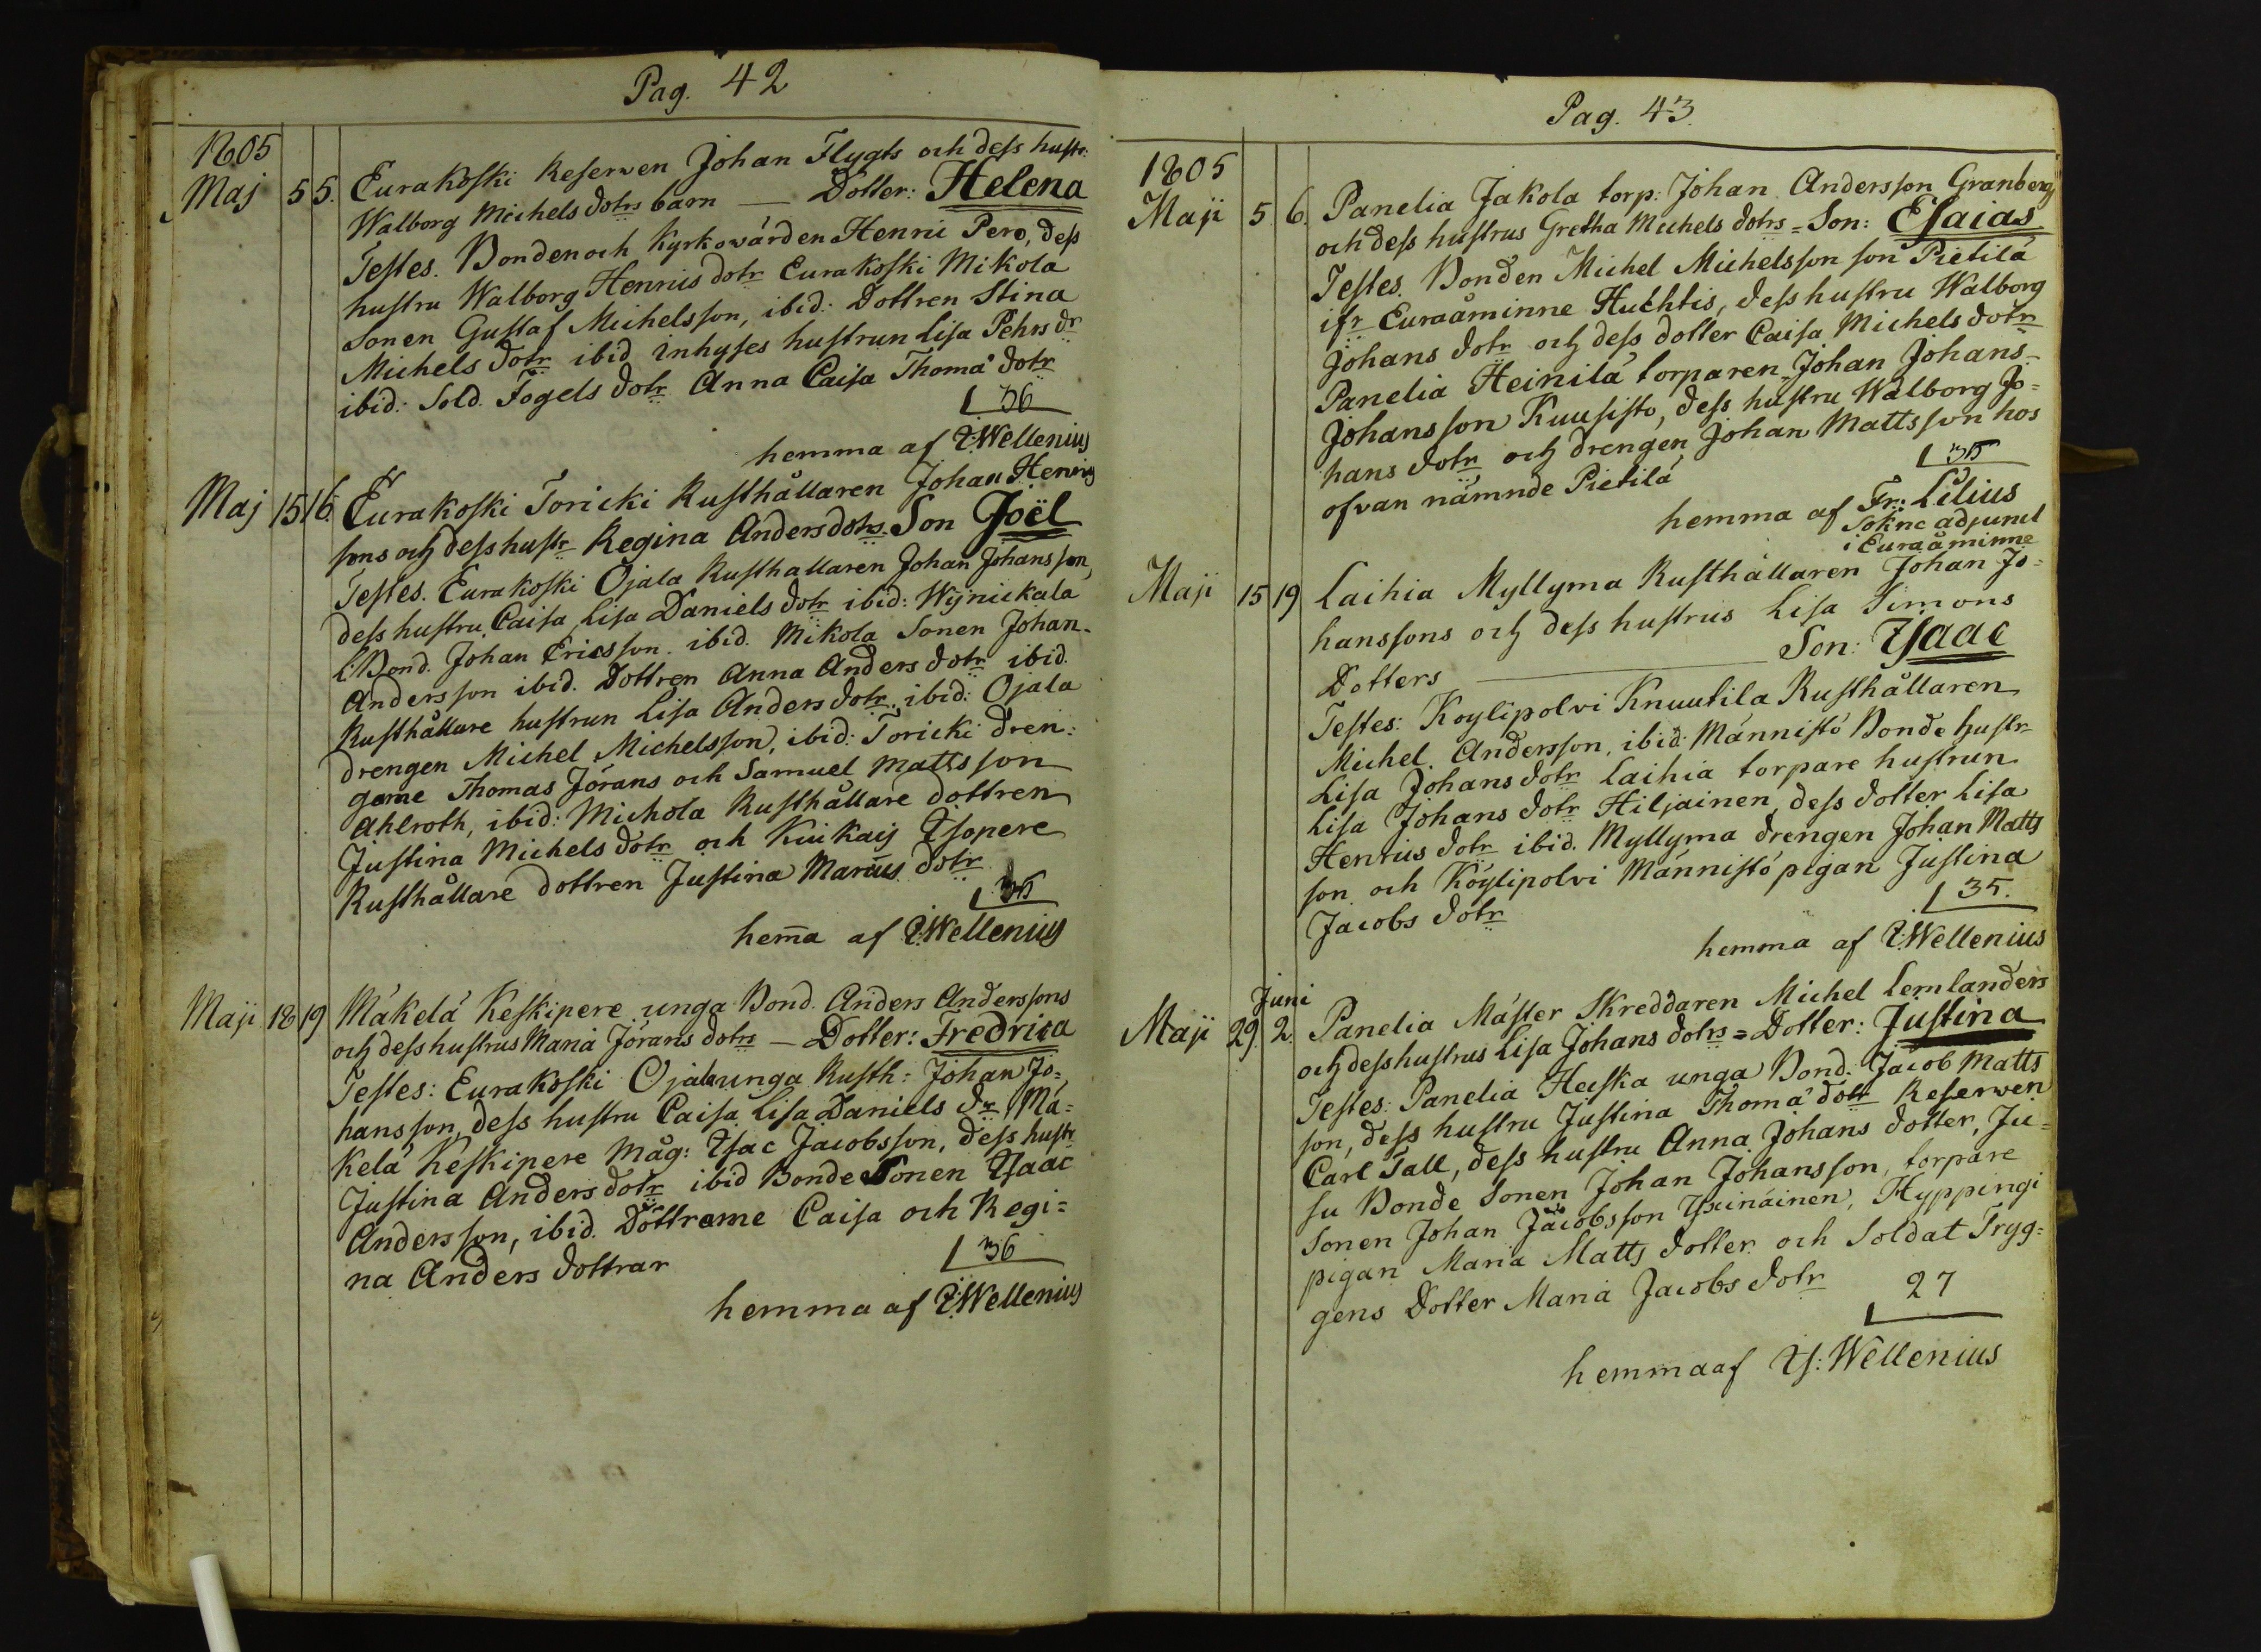 Pag. 42
1805
Maj 5 5. Eurakoski Reserven Johan Flygts och dess hustr:
Walborg Michels dotrs barn — Dotter: Helena
Testes. Bonden och Kyrkowärden Henric Pero, dess
hustru Walborg Henrics dotr Eurakoski Mikola
Sonen Gustaf Michelsson, ibid: Dottren Stina
Michels dotr ibid inhyses hustrun Lisa Pehrs dr
ibid: Sold. Fogels dotr Anna Caisa Thomæ dotr
36
hemma af I:Wellenius
Maj 15 16. Eurakoski Toricki Rusthållaren Johan Henrics
sons och dess hustr Regina Anders dotrs Son Joël
Testes. Eurakoski Ojala Rusthållaren Johan Johansson,
dess hustru Caisa Lisa Daniels dotr ibid: Wijnickala
L:Bond. Johan Ericsson. ibid. Mikola Sonen Johan
Andersson ibid. Dottren Anna Anders dotr ibid.
Rusthållare hustrun Lisa Anders dotr, ibid: Ojala
drengen Michel Michelsson, ibid: Toricki dren:
garne Thomas Jörans och Samuel Mattsson
Ahlroth, ibid: Michola Rusthållare dottren
Justina Michels dotr och Kiukais Isopere
Rusthållare dottren Justina Marcus dotr
35
hem̄a af I:Wellenius
Maji 18 19 Mäkelä Keskipere unga Bond. Anders Anderssons
och dess hustrus Maria Jörans dotrs — Dotter: Fredrica
Testes: Eurakoski Ojala unga Rusth: Johan Jo=
hansson, dess hustru Caisa Lisa Daniels dr, Mä=
kelä Keskipere Måg: Isac Jacobsson, dess hustr
Justina Anders dotr ibid Bonde Sonen Isaac
Andersson, ibid. Döttrarne Caisa och Regi=
na Anders dottrar
36
hemma af I:Wellenius
Pag. 43
1805
Maji 5 6. Panelia Jakola torp: Johan Andersson Granberg
och dess hustrus Gretha Michels dotrs = Son: Esaias
Testes. Bonden Michel Michelsson son Pietilä
ifr Euraåminne Huchtis, dess hustru Walborg
Johans dotr och dess dotter Caisa Michels dotr
Panelia Heinilä torparen Johan Johans-
Johansson Kuusisto, dess hustru Walborg Jo=
hans dotr och drengen Johan Mattsson hos
ofvan nämnde Pietilä
35
hemma af Fr: Lilius
Sokne adjunct
i Euraåminne
Maji 15 19 Laihia Myllyma Rusthållaren Johan Jo=
hanssons och dess hustrus Lisa Simons
Dotters — Son: Isaac
Testes: Koylipolvi Knuutila Rusthållaren
Michel. Andersson, ibid: Männistö Bonde hustr
Lisa Johans dotr Laihia torpare hustrun
Lisa Johans dotr Hiljainen, dess dotter Lisa
Henrics dotr ibid. Myllyma drengen Johan Matts
son och Köylipolvi Männistö pigan Justina
Jacobs dotr
35.
hemma af I:Wellenius
Juni
Maji 29. 2. Panelia Mäster Skreddaren Michel Lemlanders
och dess hustrus Lisa Johans dotrs = Dotter: Justina
Testes: Panelia Heiska unga Bond. Jacob Matts
son, dess hustru Justina Thomæ dotr Reserven
Carl Tall, dess hustru Anna Johans dotter, Ju=
su Bonde Sonen Johan Johansson, torpare
Sonen Johan Jacobsson Yxinäinen, Hyppingi
pigan Maria Matts dotter och Soldat Tryg=
gens Dotter Maria Jacobs dotr
27
hemma af Is: Wellenius